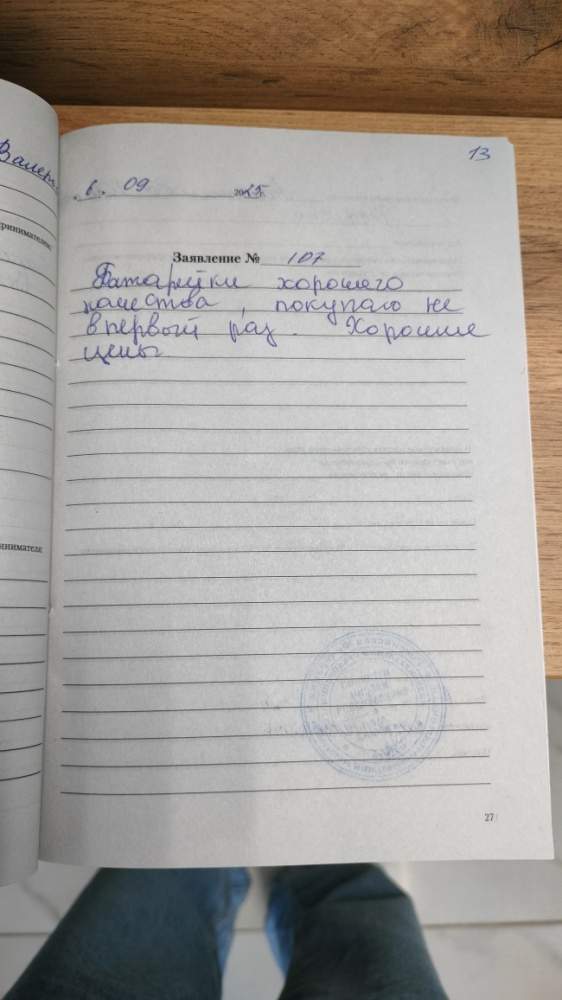 Валер
13
„ 6 „ 09 2025
ринимателю:
Заявление № 107
Батарейки хорошего
качества, покупаю не
впервый раз. Хорошие
цены
инимателя:
27